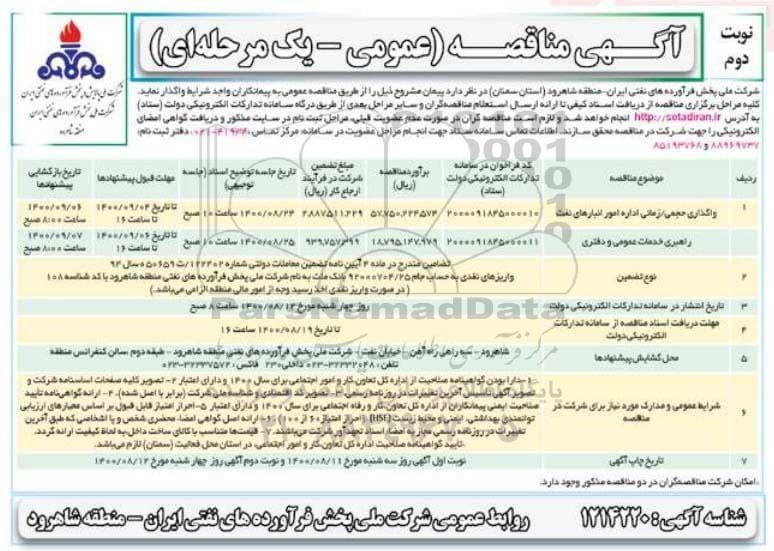 نوبت دوم
آگهی مناقصه (عمومی - یک مرحله‌ای)
شرکت ملی پخش فرآورده های نفتی ایران
منطقه شاهرود
شرکت ملی پخش فرآورده های نفتی ایران-منطقه شاهرود (استان سمنان) در نظر دارد پیمان مشروح ذیل را از طریق مناقصه عمومی به پیمانکاران واجد شرایط واگذار نماید.
کلیه مراحل برگزاری مناقصه از دریافت اسناد کیفی تا ارائه ارسال استعلام مناقصه‌گران و سایر مراحل بعدی از طریق درگاه سامانه تدارکات الکترونیکی دولت (ستاد)
به آدرس http://setadiran.ir انجام خواهد شد و لازم است مناقصه گران در صورت عدم عضویت قبلی، مراحل ثبت نام در سایت مذکور و دریافت گواهی امضای
الکترونیکی را جهت شرکت در مناقصه محقق سازند. اطلاعات تماس سامانه ستاد جهت انجام مراحل عضویت در سامانه: مرکز تماس: ۴۱۹۳۴-۰۲۱ دفتر ثبت نام:
۸۸۹۶۹۷۳۷ و ۸۵۱۹۳۷۶۸
ردیف موضوع مناقصه کد فراخوان در سامانه تدارکات الکترونیکی دولت (ستاد) برآورد مناقصه (ریال) مبلغ تضمین شرکت در فرآیند ارجاع کار (ریال) تاریخ جلسه توضیح اسناد (جلسه توجیهی) مهلت قبول پیشنهادها تاریخ بازگشایی پیشنهادها
۱ واگذاری حجمی/زمانی اداره امور انبارهای نفت ۲۰۰۰۰۹۱۸۴۵۰۰۰۰۱۰ ۵۷،۷۵۰،۲۲۴،۵۷۴ ۲،۸۸۷،۵۱۱،۲۲۹ ۱۴۰۰/۰۸/۲۴ ساعت ۱۰ صبح تا تاریخ ۱۴۰۰/۰۹/۰۴ تا ساعت ۱۶ ۱۴۰۰/۰۹/۰۶ ساعت ۸:۰۰ صبح
راهبری خدمات عمومی و دفتری ۲۰۰۰۰۹۱۸۴۵۰۰۰۰۱۱ ۱۸،۷۹۵،۱۴۷،۹۷۹ ۹۳۹،۷۵۷،۳۹۹ ۱۴۰۰/۰۸/۲۵ ساعت ۱۰ صبح تا تاریخ ۱۴۰۰/۰۹/۰۶ تا ساعت ۱۶ ۱۴۰۰/۰۹/۰۷ ساعت ۸:۰۰ صبح
۲ نوع تضمین تضامین مندرج در ماده ۴ آیین نامه تضمین معاملات دولتی شماره ۱۲۳۴۰۲/ت۵۰۶۵۹ه سال ۹۴
واریزهای نقدی به حساب جام بانک ملت به نام شرکت ملی پخش فرآورده های نفتی منطقه شاهرود با کد شناسه ۱۰۸
(در صورت واریز نقدی اخذ رسید وجه از امور مالی منطقه الزامی می‌باشد.)
۳ تاریخ انتشار در سامانه تدارکات الکترونیکی دولت روز چهار شنبه مورخ ۱۴۰۰/۰۸/۱۲ ساعت ۸ صبح
۴ مهلت دریافت اسناد مناقصه از سامانه تدارکات الکترونیکی دولت تا تاریخ ۱۴۰۰/۰۸/۱۹ ساعت ۱۶
۵ محل گشایش پیشنهادها شاهرود- سه راهی راه آهن - خیابان نفت - شرکت ملی پخش فرآورده های نفتی منطقه شاهرود - طبقه دوم - سالن کنفرانس منطقه
تلفن: ۳۲۳۳۲۰۴۸-۰۲۳ داخلی ۲۳۰ فاکس: ۳۲۳۳۷۵۷۲-۰۲۳
۶ شرایط عمومی و مدارک مورد نیاز برای شرکت در مناقصه ۱- دارا بودن گواهینامه صلاحیت از اداره کل تعاون، کار و امور اجتماعی برای سال ۱۴۰۰ و دارای اعتبار ۲- تصویر کلیه صفحات اساسنامه شرکت و
تصویر آگهی تاسیس، آخرین تغییرات در روزنامه رسمی ۳- تصویر کد اقتصادی و شناسه ملی شرکت (برابر با اصل شده). ۴- ارائه گواهی‌نامه تأیید
صلاحیت ایمنی پیمانکاران از اداره کل تعاون،کار و رفاه اجتماعی برای سال ۱۴۰۰ و دارای اعتبار ۵-احراز امتیاز قابل قبول بر اساس معیارهای ارزیابی
توانمندی بهداشتی، ایمنی و محیط زیست (HSE) (احراز امتیاز ۶۰ از ۱۰۰) ۶- ارائه اصل گواهی امضاء محضری شخص و یا اشخاصی که طبق آخرین
تغییرات در روزنامه رسمی مجاز به امضاء اسناد تعهدآور شرکت می‌باشند. ۷- قیمت‌ها متناسب با کالای ساخت داخل به لحاظ کیفیت ارائه گردد.
-تأیید گواهینامه صلاحیت اداره کل تعاون،کار و امور اجتماعی، در استان محل فعالیت (سمنان) لازم می‌باشد.
۷ تاریخ چاپ آگهی نوبت اول آگهی روز سه شنبه مورخ ۱۴۰۰/۰۸/۱۱ و نوبت دوم آگهی روز چهار شنبه مورخ ۱۴۰۰/۰۸/۱۲
-امکان شرکت مناقصه‌گران در دو مناقصه مذکور وجود دارد.
شناسه آگهی: ۱۲۱۴۲۲۰ روابط عمومی شرکت ملی پخش فرآورده های نفتی ایران - منطقه شاهرود
ParsNamadData